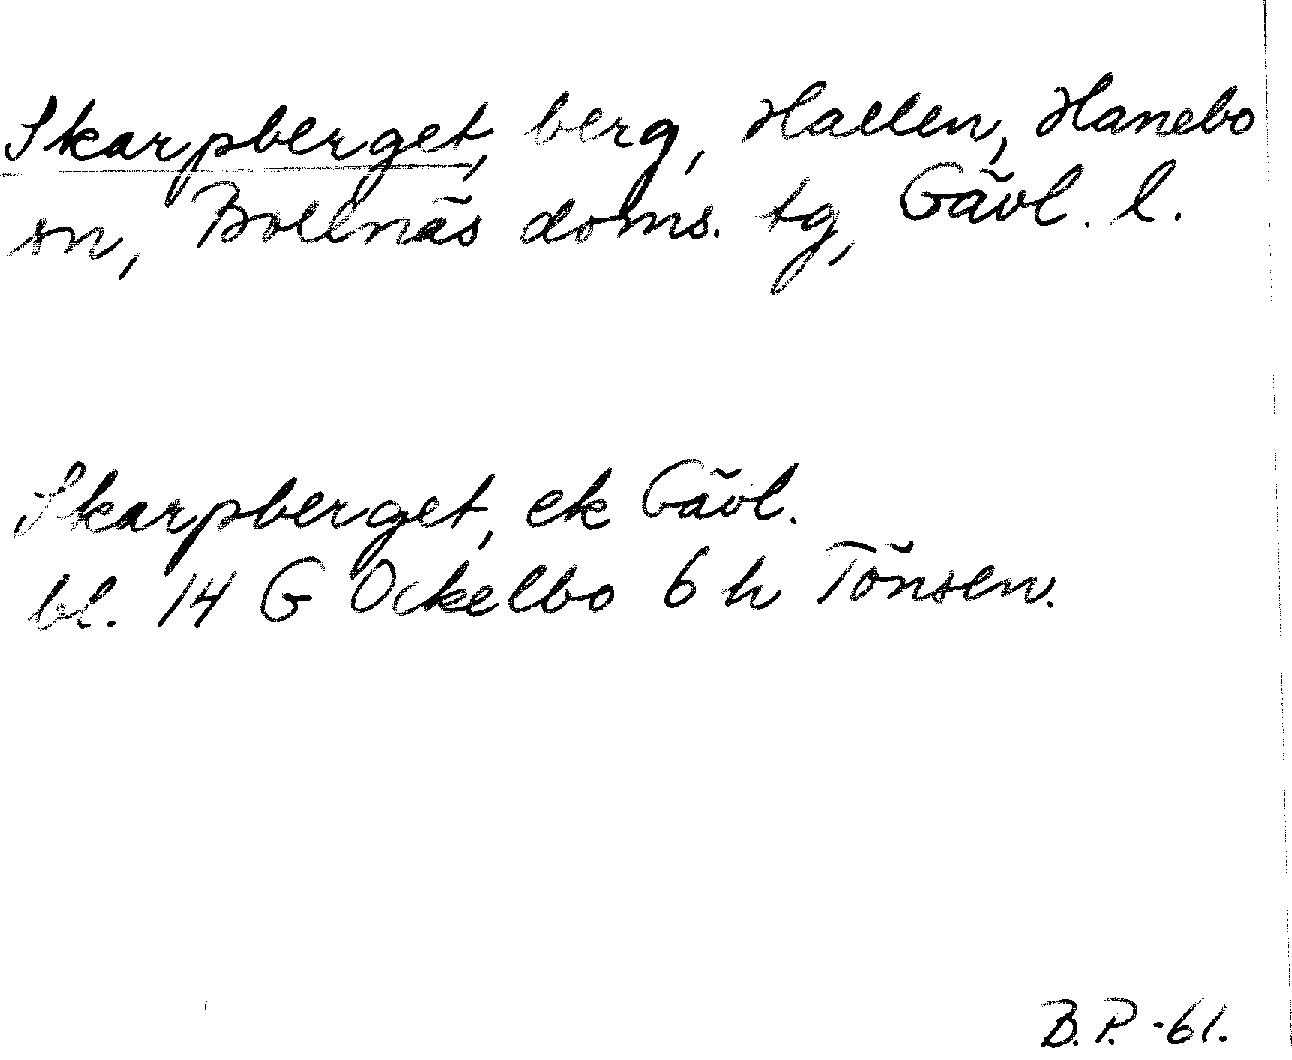 Skarpberget, berg, Hallen, Hanebo
sn, Bollnäs doms. tg, Gävl. l.
Skarpberget, ek Gävl.
bl. 14 G Ockelbo 6 h Tönsen.
B.P. -61.